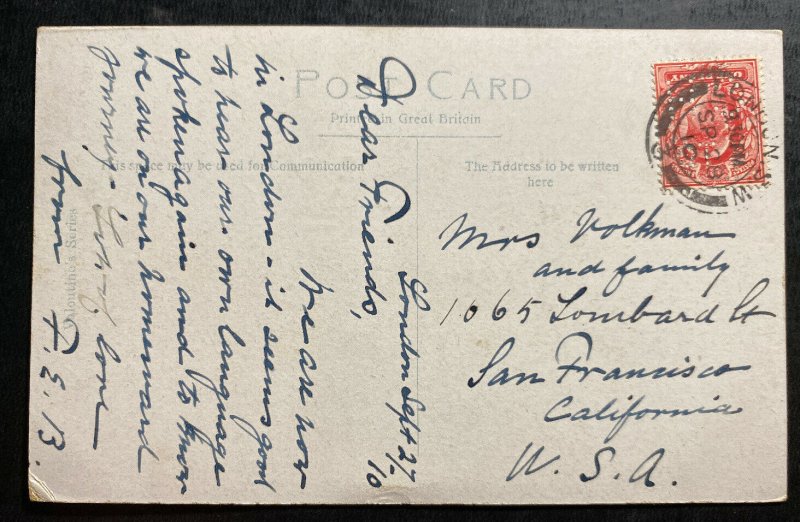 POST CARD
Printed in Great Britain
This space may be used for Communication
The Address to be written
here
Valentine's Series
London Sept 27/-10
Dear Friends,
We are now
in London - it seems good
to hear our own language
spoken again and to know
we are on our homeward
journey - Lots of love
from
Mrs Volkman
and family
1065 Lombard St
San Francisco
California
U.S.A.
LONDON
SP 28
10